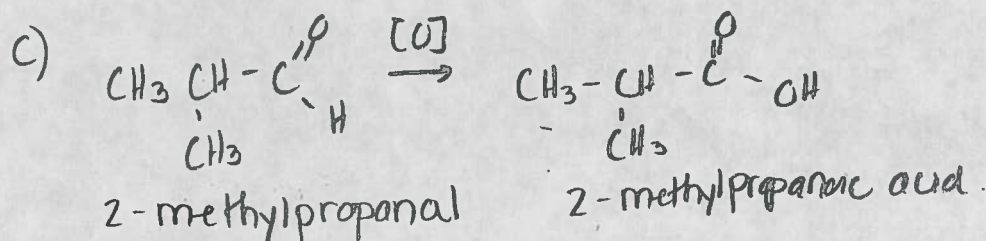 C) CH3 CH - C =O H [O] → CH3 - CH - C =O - OH
CH3 CH3
2-methylpropanal 2-methylpropanoic acid.